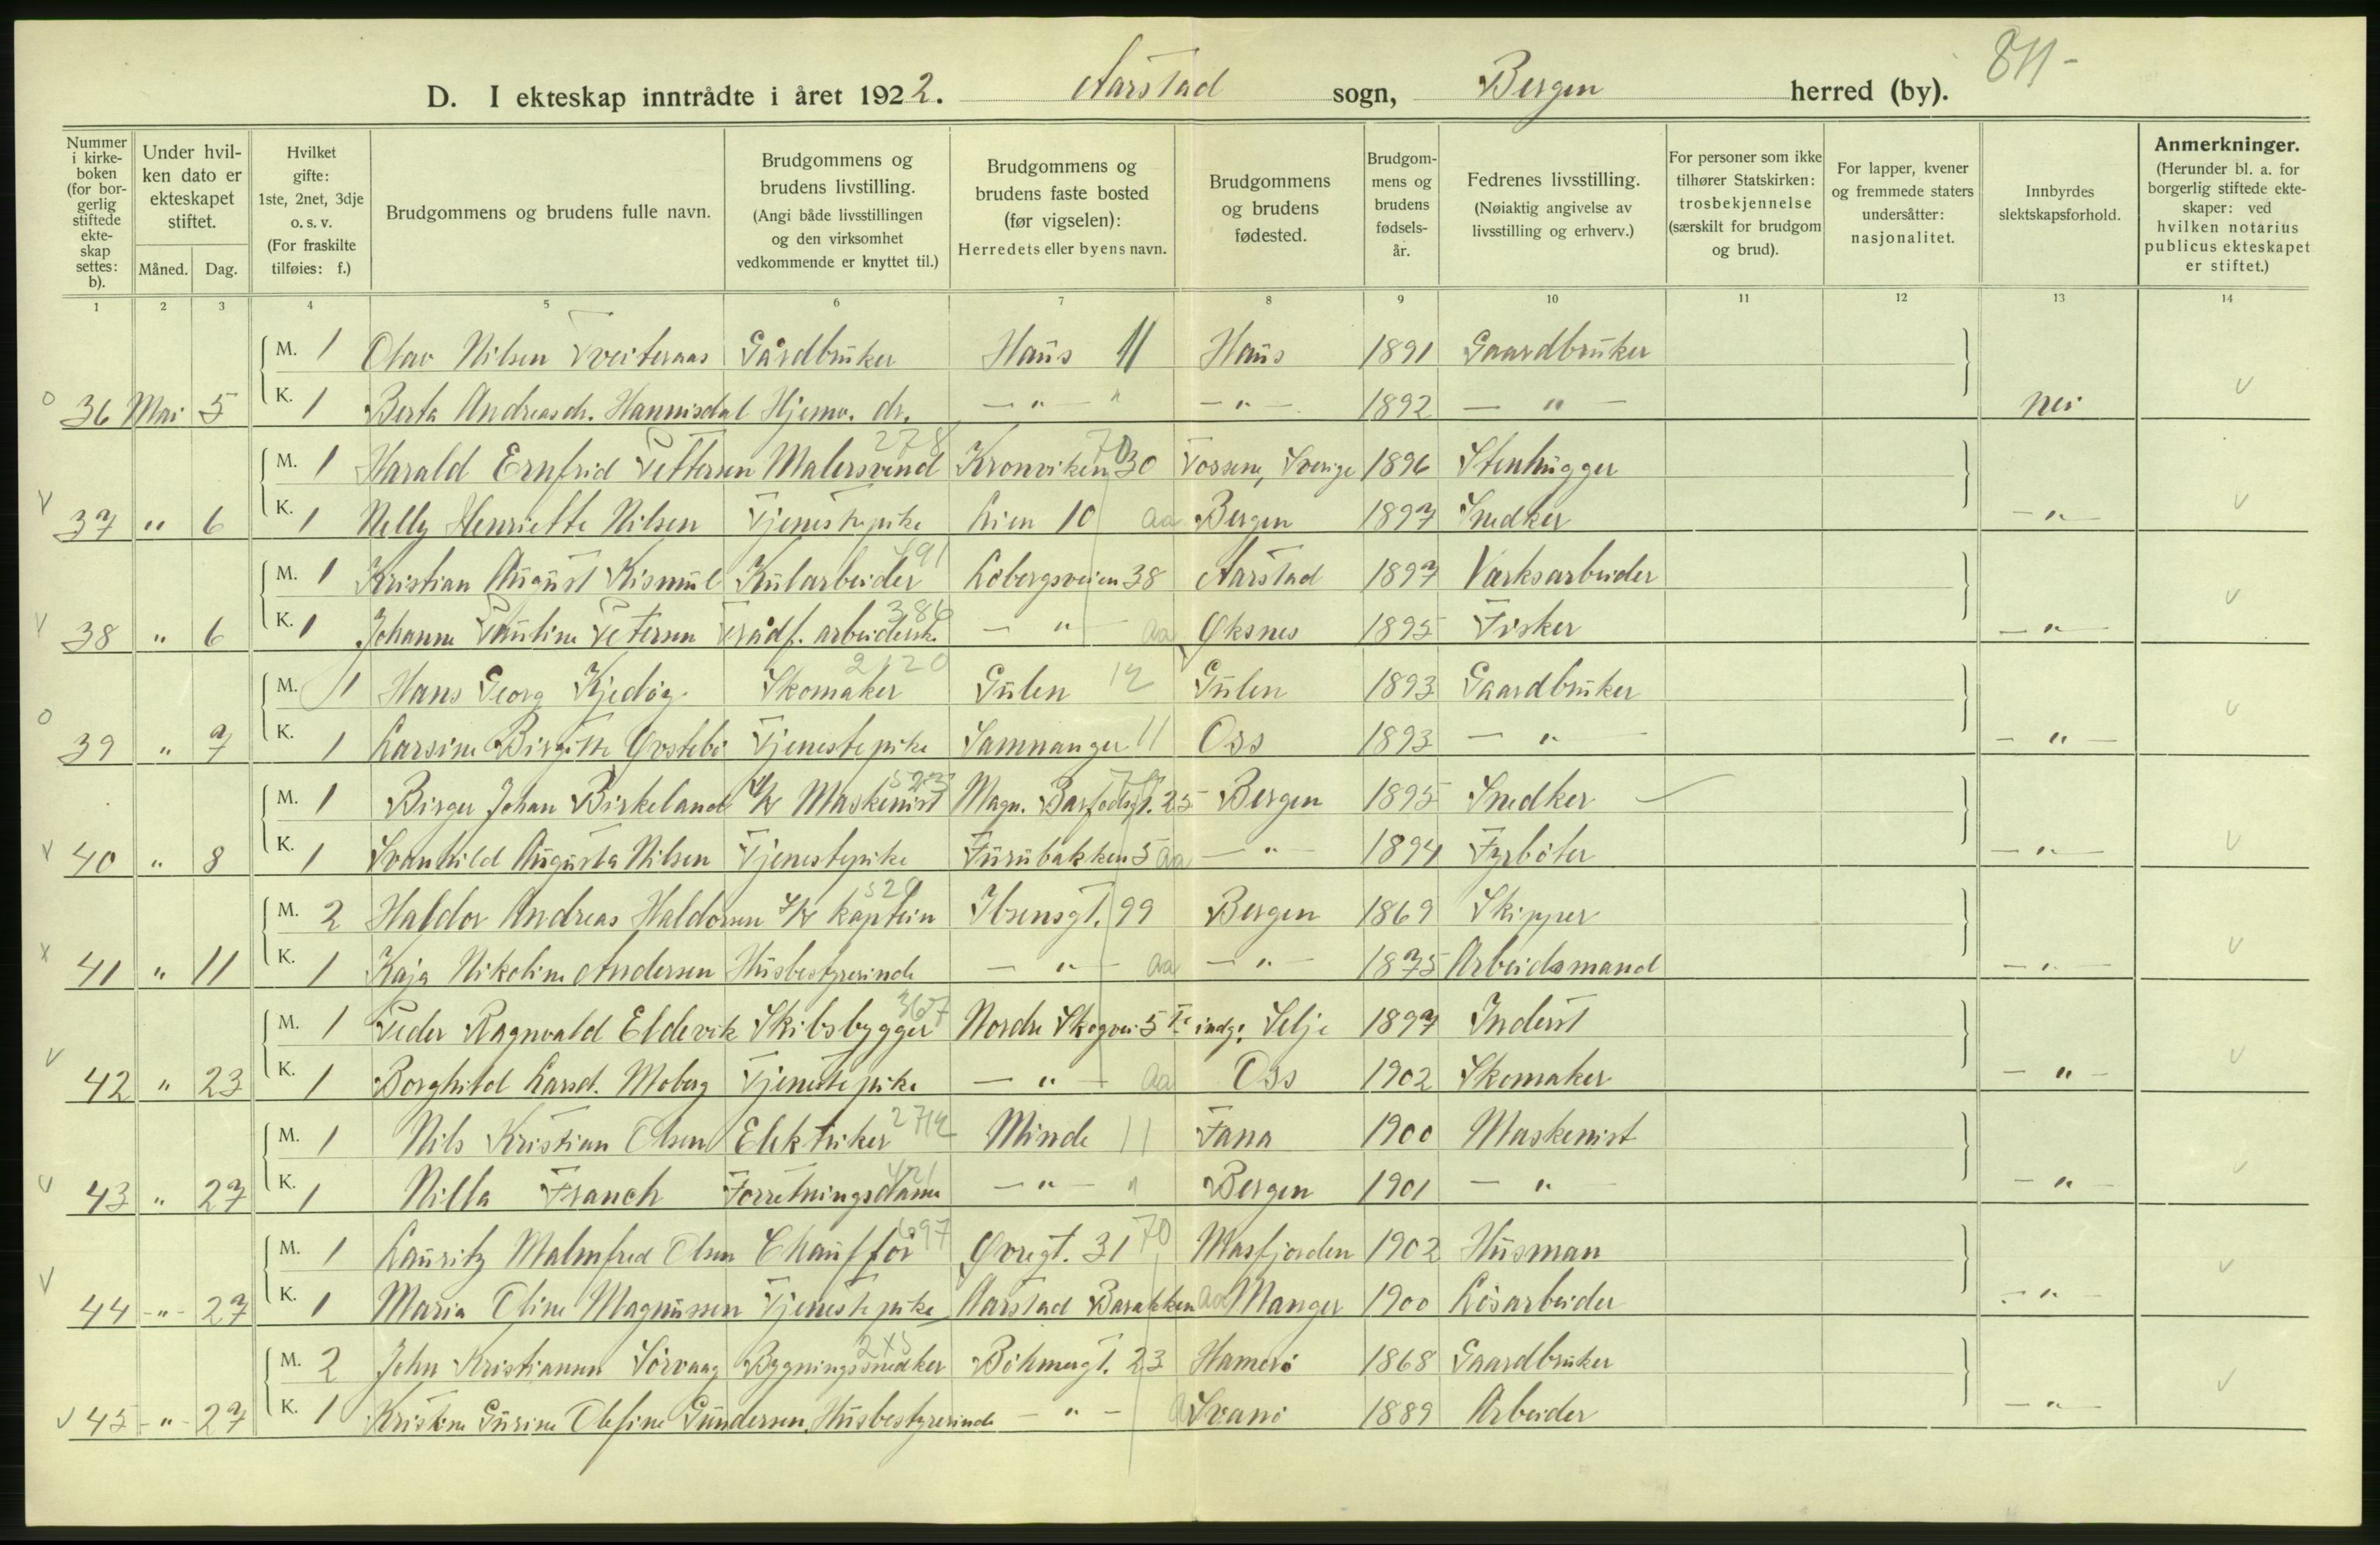 D. I ekteskap inntrådte i året 1922. Aarstad sogn, Bergen herred (by). 811-
Nummer i kirkeboken (for borgerlig stiftede ekteskap settes: b).
Under hvilken dato er ekteskapet stiftet.
Måned. Dag.
Hvilket gifte: 1ste, 2net, 3dje o. s. v. (For fraskilte tilføies: f.)
Brudgommens og brudens fulle navn.
Brudgommens og brudens livstilling. (Angi både livsstillingen og den virksomhet vedkommende er knyttet til.)
Brudgommens og brudens faste bosted (før vigselen): Herredets eller byens navn.
Brudgommens og brudens fødested.
Brudgommens og brudens fødselsår.
Fedrenes livsstilling. (Nøiaktig angivelse av livsstilling og erhverv.)
For personer som ikke tilhører Statskirken: trosbekjennelse (særskilt for brudgom og brud).
For lapper, kvener og fremmede staters undersåtter: nasjonalitet.
Innbyrdes slektskapsforhold.
Anmerkninger. (Herunder bl. a. for borgerlig stiftede ekteskaper: ved hvilken notarius publicus ekteskapet er stiftet.)
1 2 3 4 5 6 7 8 9 10 11 12 13 14
M. 1 Olav Nilsen Tveiteraas Gårdbruker Haus 11 Haus 1891 Gaardbruker
o 36 Mai 5 K. 1 Berta Andreasdr. Hannisdal Hjemv. dr. — " — " — " — 1892 — " — Nei v
278
M. 1 Harald Ernfrid Pettersen Malersvend Kronviken 30 70 Tossene, Sverige 1896 Stenhugger
v 37 " 6 K. 1 Nelly Henriette Nilsen Tjenestepike Lien 10 aa Bergen 1897 Snedker — " — v
491
M. 1 Kristian August Kismul Kularbeider Løbergsveien 38 Aarstad 1897 Værksarbeider
386
v 38 " 6 K. 1 Johanne Pauline Petersen Trådf. arbeiderske — " — aa Øksnes 1895 Fisker — " — v
2120
M. 1 Hans Georg Kjedøy Skomaker Gulen 12 Gulen 1893 Gaardbruker
o 39 " 7 K. 1 Larsine Birgitte Øvstebø Tjenestepike Samnanger 11 Oss 1893 — " — — " — v
523
M. 1 Birger Johan Birkeland Maskinist Magn. Barfodsgt. 25 70 Bergen 1895 Snedker
v 40 " 8 K. 1 Svanhild Augusta Nilsen Tjenestepike Furubakken 5 aa — " — 1894 Fyrbøter — " — v
520
M. 2 Haldor Andreas Haldorsen kaptein Ibsensgt. 99 Bergen 1869 Skipper
x 41 " 11 K. 1 Kaja Nikoline Andersen Husbestyrerinde — " — aa — " — 1875 Arbeidsmand — " — v
367
M. 1 Peder Ragnvald Eldevik Skibsbygger Nordre Skogvei 5 indg. Selje 1897 Inderst
v 42 " 23 K. 1 Borghild Larsd. Moberg Tjenestepike — " — aa Oss 1902 Skomaker — " — v
M. 1 Nils Kristian Olsen Elektriker Minde 11 Fana 1900 Maskenist
v 43 " 27 K. 1 Nilla Franch Forretningsdame — " — " Bergen 1901 — " — — " — v
697
M. 1 Lauritz Malmfred Olsen Chauffør Øvregt. 31 70 Masfjorden 1902 Husman
v 44 - " - 27 K. 1 Maria Oline Magnussen Tjenestepike Aarstad Barakken aa Manger 1900 Løsarbeider — " — v
M. 2 John Kristiansen Sørvaag Bygningssnedker Bøhmergt. 23 Hamerø 1868 Gaardbruker
v 45 - " - 27 K. 1 Kristine Gurine Olefine Gundersen Husbestyrerinde — " — a Svanø 1889 Arbeider — " — v